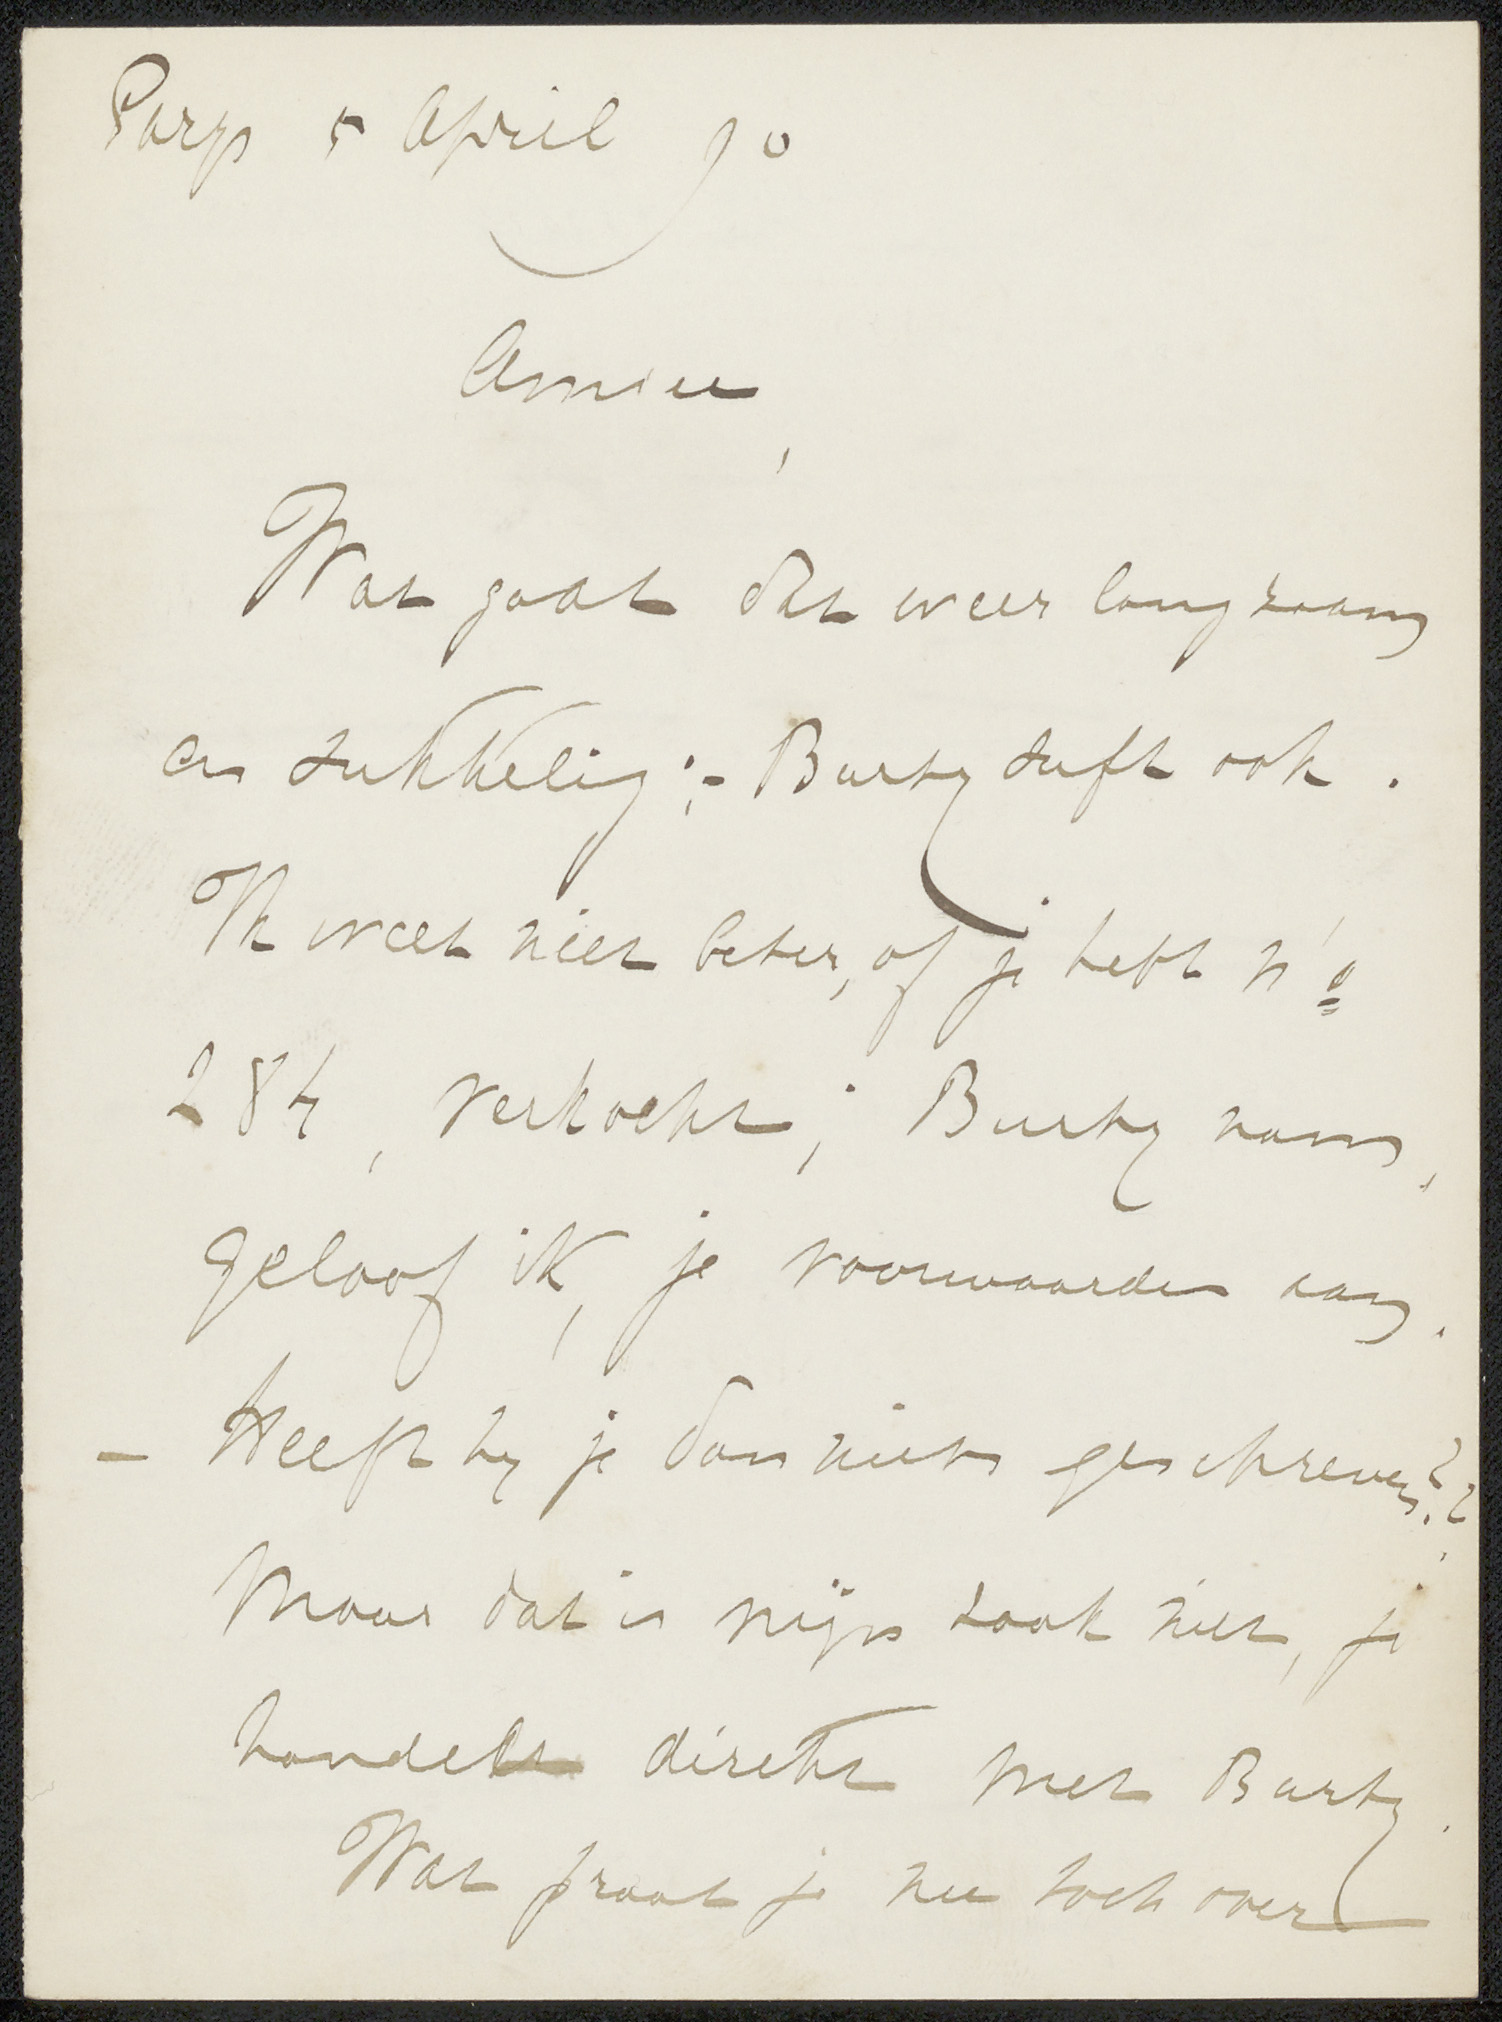 Parys 5 April 90
Amice,
Wat gaat dat weer langzaam
en sukkelig; - Burty suft ook.
Ik weet niet beter, of je hebt no
284, verkocht; Burty nam,
geloof ik, je voorwaarden aan.
- Heeft hy je dan niets geschreven??
Maar dat is mijn zaak niet, je
handelt direkt met Burty.
Wat praat je nu toch over